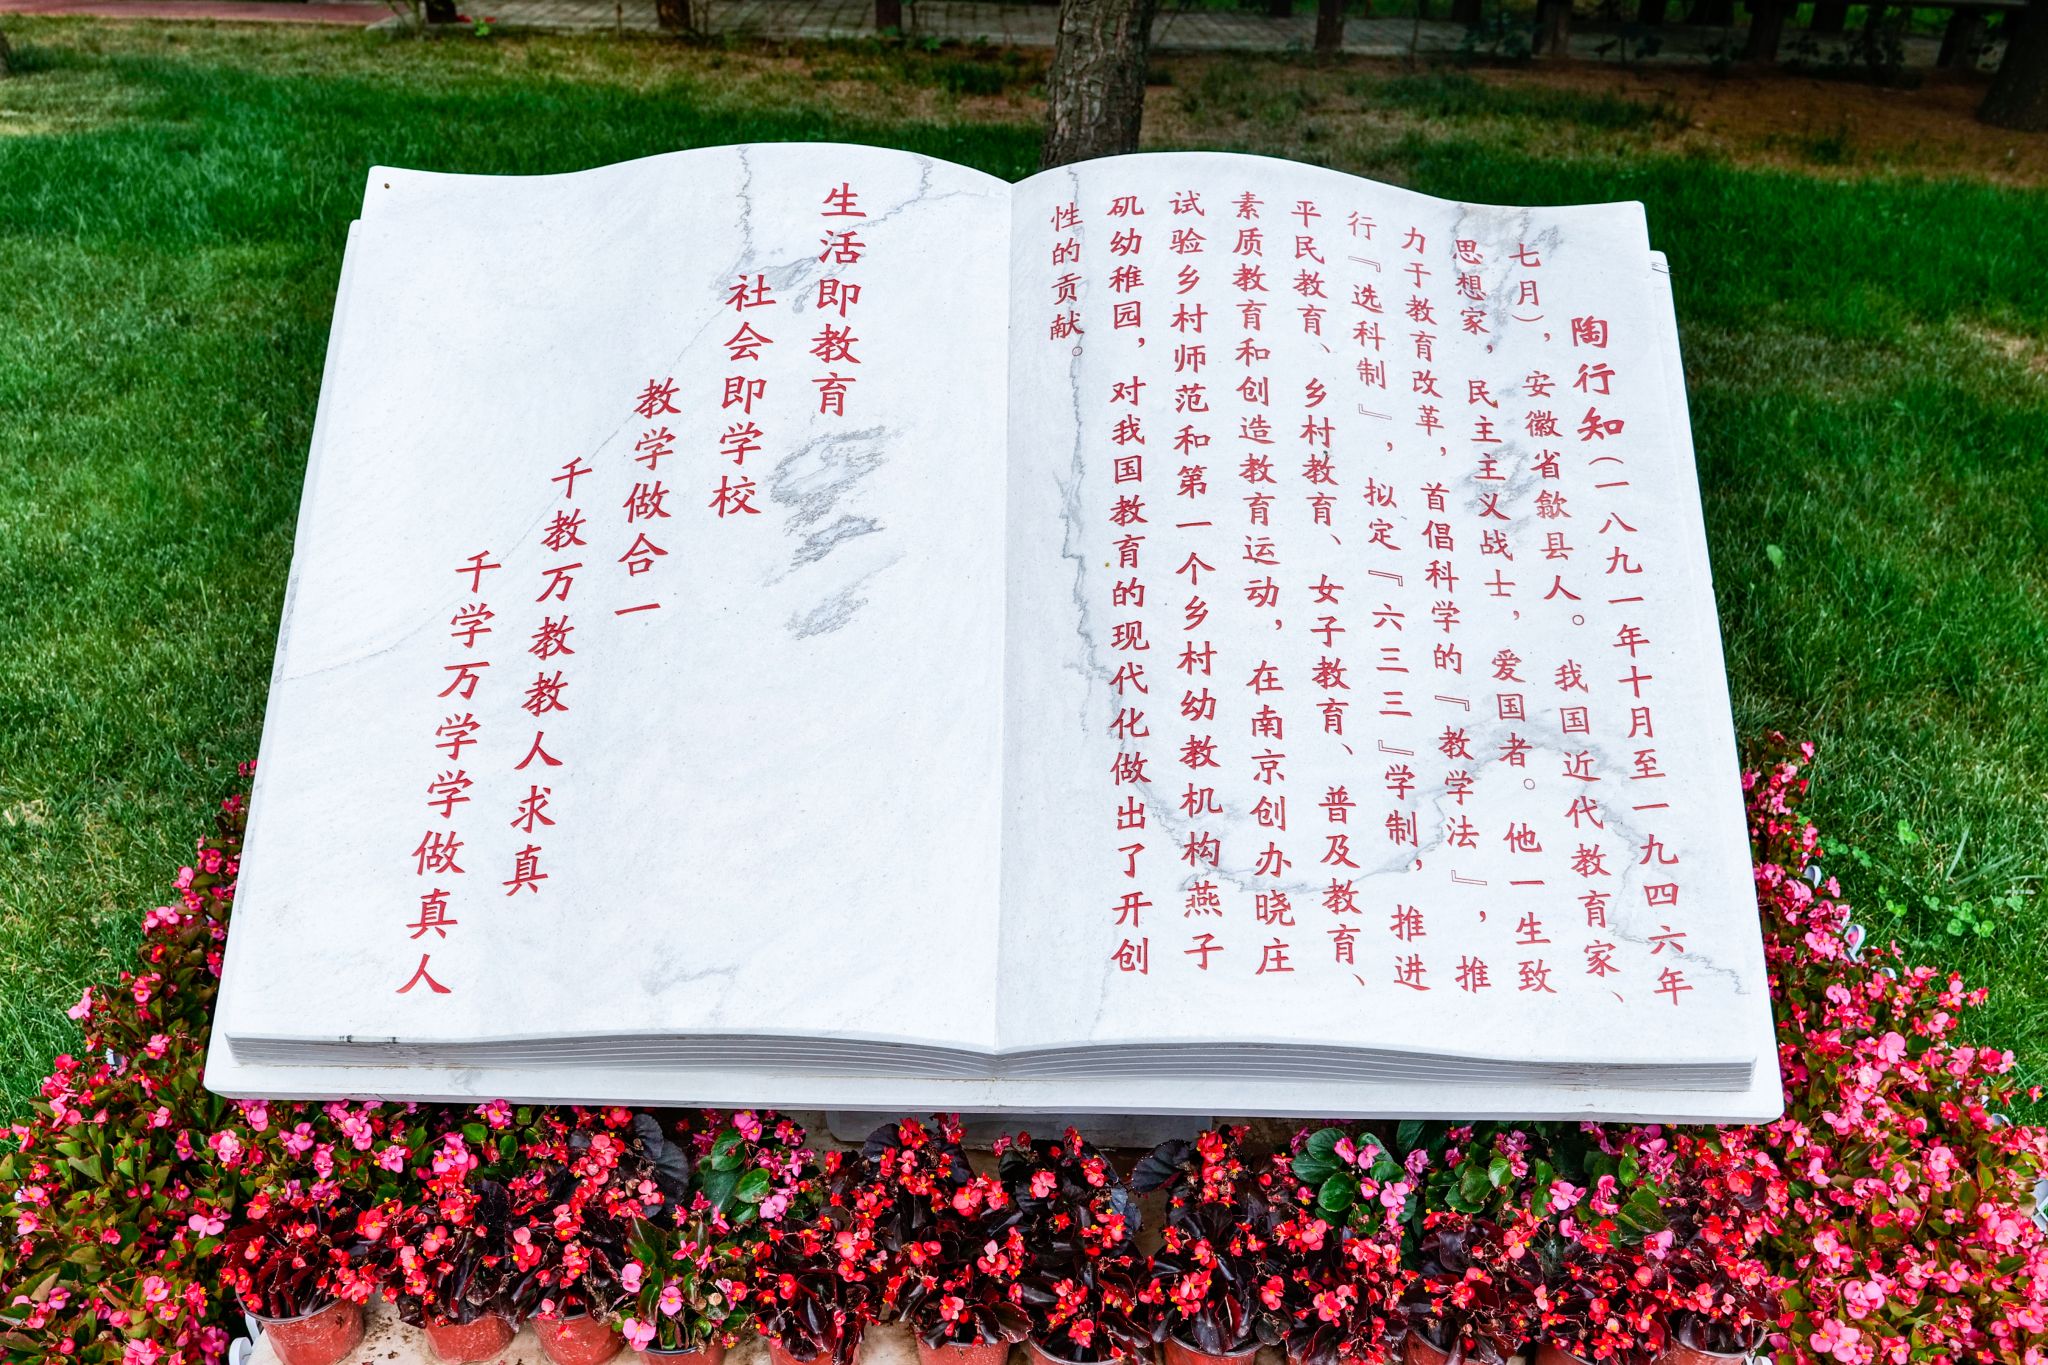 陶行知（一八九一年十月至一九四六年
七月），安徽省歙县人。我国近代教育家、
思想家，民主主义战士，爱国者。他一生致
力于教育改革，首倡科学的『教学法』，推
行『选科制』，拟定『六三三』学制，推进
平民教育、乡村教育、女子教育、普及教育、
素质教育和创造教育运动，在南京创办晓庄
试验乡村师范和第一个乡村幼教机构燕子
矶幼稚园，对我国教育的现代化做出了开创
性的贡献。
生活即教育
社会即学校
教学做合一
千教万教教人求真
千学万学学做真人